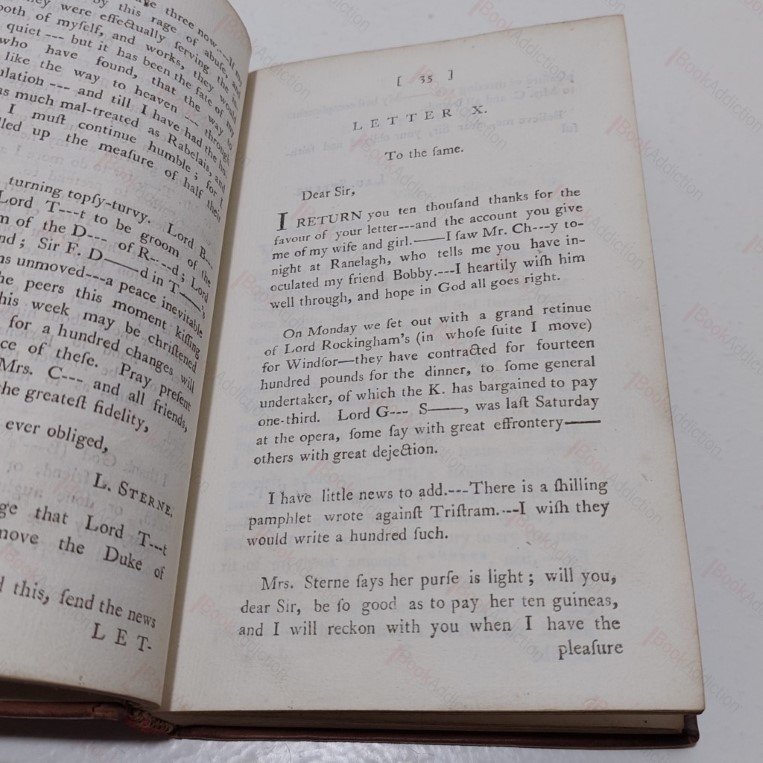 three now
by this rage of abuse, and
they were effectually serving the
both of myſelf, and works, they would
quiet --- but it has been the fate of
who have found, that the way to
like the way to heaven --- through
ulation --- and till I have had the
as much mal-treated as Rabelais, and
I muſt continue humble; for I
lled up the meaſure of half their
turning topſy-turvy. Lord B
Lord T---t to be groom of the
m of the D--- of R---d; Lord
nd; Sir F. D——d in T——'s
ns unmoved---a peace inevitable
he peers this moment kiſſing
his week may be chriſtened
for a hundred changes will
ce of theſe. Pray preſent
Mrs. C--- and all friends,
the greateſt fidelity,
ever obliged,
L. STERNE.
ge that Lord T---t
move the Duke of
d this, ſend the news
LET-
[ 35 ]
LETTER X.
To the ſame.
Dear Sir,
I RETURN you ten thouſand thanks for the
favour of your letter---and the account you give
me of my wife and girl.——I ſaw Mr. Ch---y to-
night at Ranelagh, who tells me you have in-
oculated my friend Bobby.---I heartily wiſh him
well through, and hope in God all goes right.
On Monday we ſet out with a grand retinue
of Lord Rockingham's (in whoſe ſuite I move)
for Windſor—they have contracted for fourteen
hundred pounds for the dinner, to ſome general
undertaker, of which the K. has bargained to pay
one-third. Lord G--- S——, was laſt Saturday
at the opera, ſome ſay with great effrontery——
others with great dejection.
I have little news to add.---There is a ſhilling
pamphlet wrote againſt Triſtram.---I wiſh they
would write a hundred ſuch.
Mrs. Sterne ſays her purſe is light; will you,
dear Sir, be ſo good as to pay her ten guineas,
and I will reckon with you when I have the
pleaſure